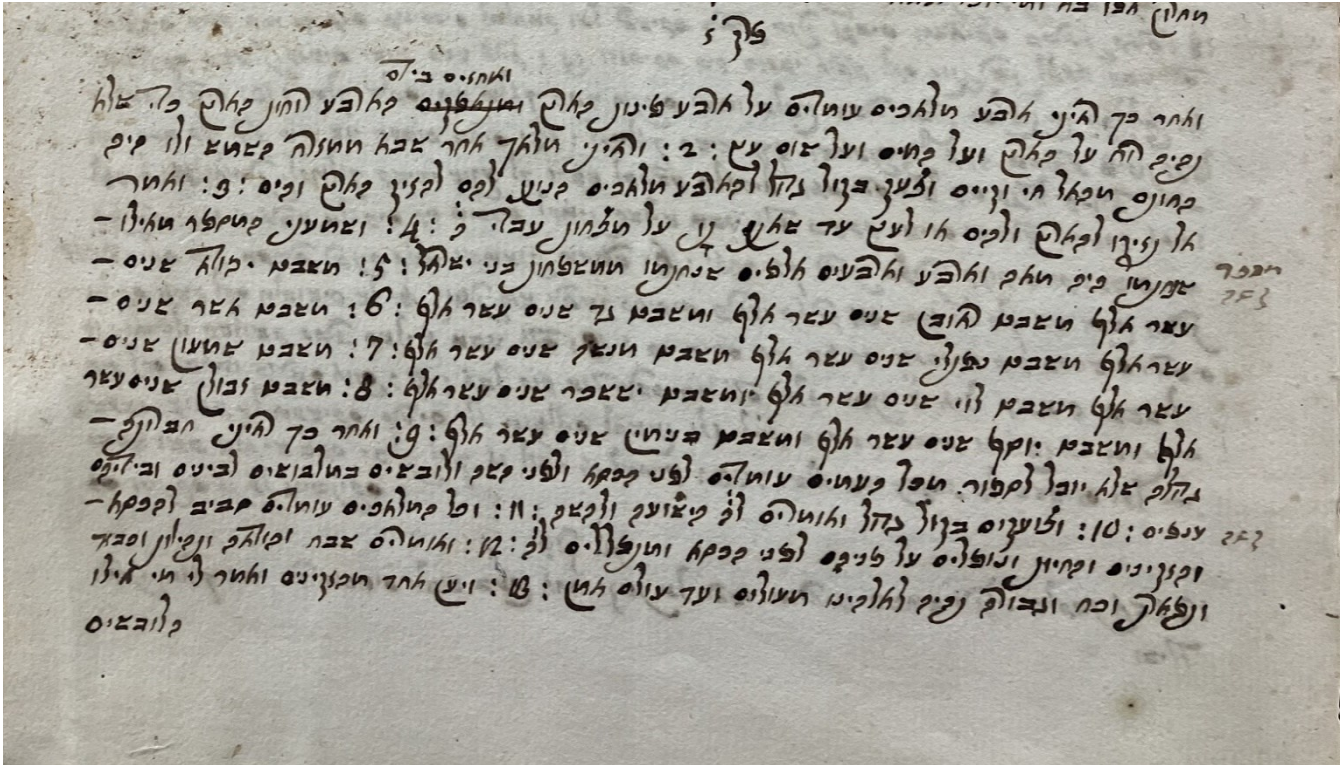 פרק ז
ואחזים
ואחר כך ראיתי ארבע מלאכים עומדים על ארבע פינות הארץ בארבע רוחות הארץ כדי שלא
נהיה רוח על הארץ ועל המים ועל שום עץ :2: וראיתי מלאך אחר שבא ממזרח השמש ולו היה
החותם מהאל חי וקיים וצועק בקול גדול להארבע מלאכים להם להזיק הארץ והים :3: ואמר
אל תזיקו להארץ ולהים או לעץ עד על מצחות עבדי ה׳ :4: ושמעתי המספר מאילו –
שנחתמו היה מאה וארבע וארבעים אלפים שנחתמו ממשפחות בני ישראל :5: משבט יהודא שנים –
עשר אלף משבט ראובן שנים עשר אלף ומשבט גד שנים עשר אלף :6: משבט אשר שנים –
עשר אלף משבט נפתלי שנים עשר אלף משבט מנשה שנים עשר אלף :7: משבט שמעון שנים –
עשר אלף משבט לוי שנים עשר אלף ומשבט יששכר שנים עשר אלף :8: משבט זבולן שנים עשר
אלף ומשבט יוסף שנים עשר אלף ומשבט בנימין שנים עשר אלף :9: ואחר כך ראיתי חבורה –
גדולה שלא יוכל לספור. מכל העמים עומדים לפני הכסא ולפני השה ולובשים במלבושים לבינים ובידיהם
ענפים :10: וצועקים בקול גדול ואומרים לה׳ הישועה ולהשה :11: וכל המלאכים עומדים סביב להכסא –
והזקינים והחיות ונופלים על פניהם לפני הכסא ומתפללים לה׳ :12: ואומרים שבח והודאה וגדולה וכבוד
ותפארת וכח וגבורה נהיה לאלהינו מעולם ועד עולם אמן :13: ויען אחד מהזקינים ואמר לי מי אילו
הלובשים